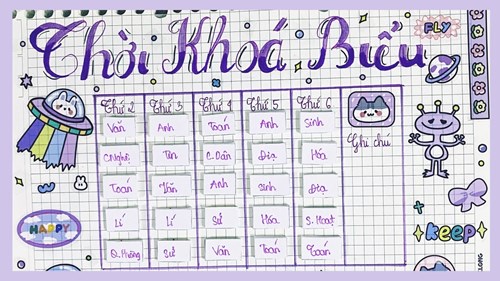 Thời Khoá Biểu
FLY
Thứ 2 Thứ 3 Thứ 4 Thứ 5 Thứ 6
Văn Anh Toán Anh Sinh
Ghi chú
C.Nghệ Tin C.Dân Địa Hóa
Toán Văn Anh Sinh Địa
Lí Lí Sử Hóa S.Hoạt
HAPPY
keep
Q.Phòng Sử Văn Toán Toán
KLONG